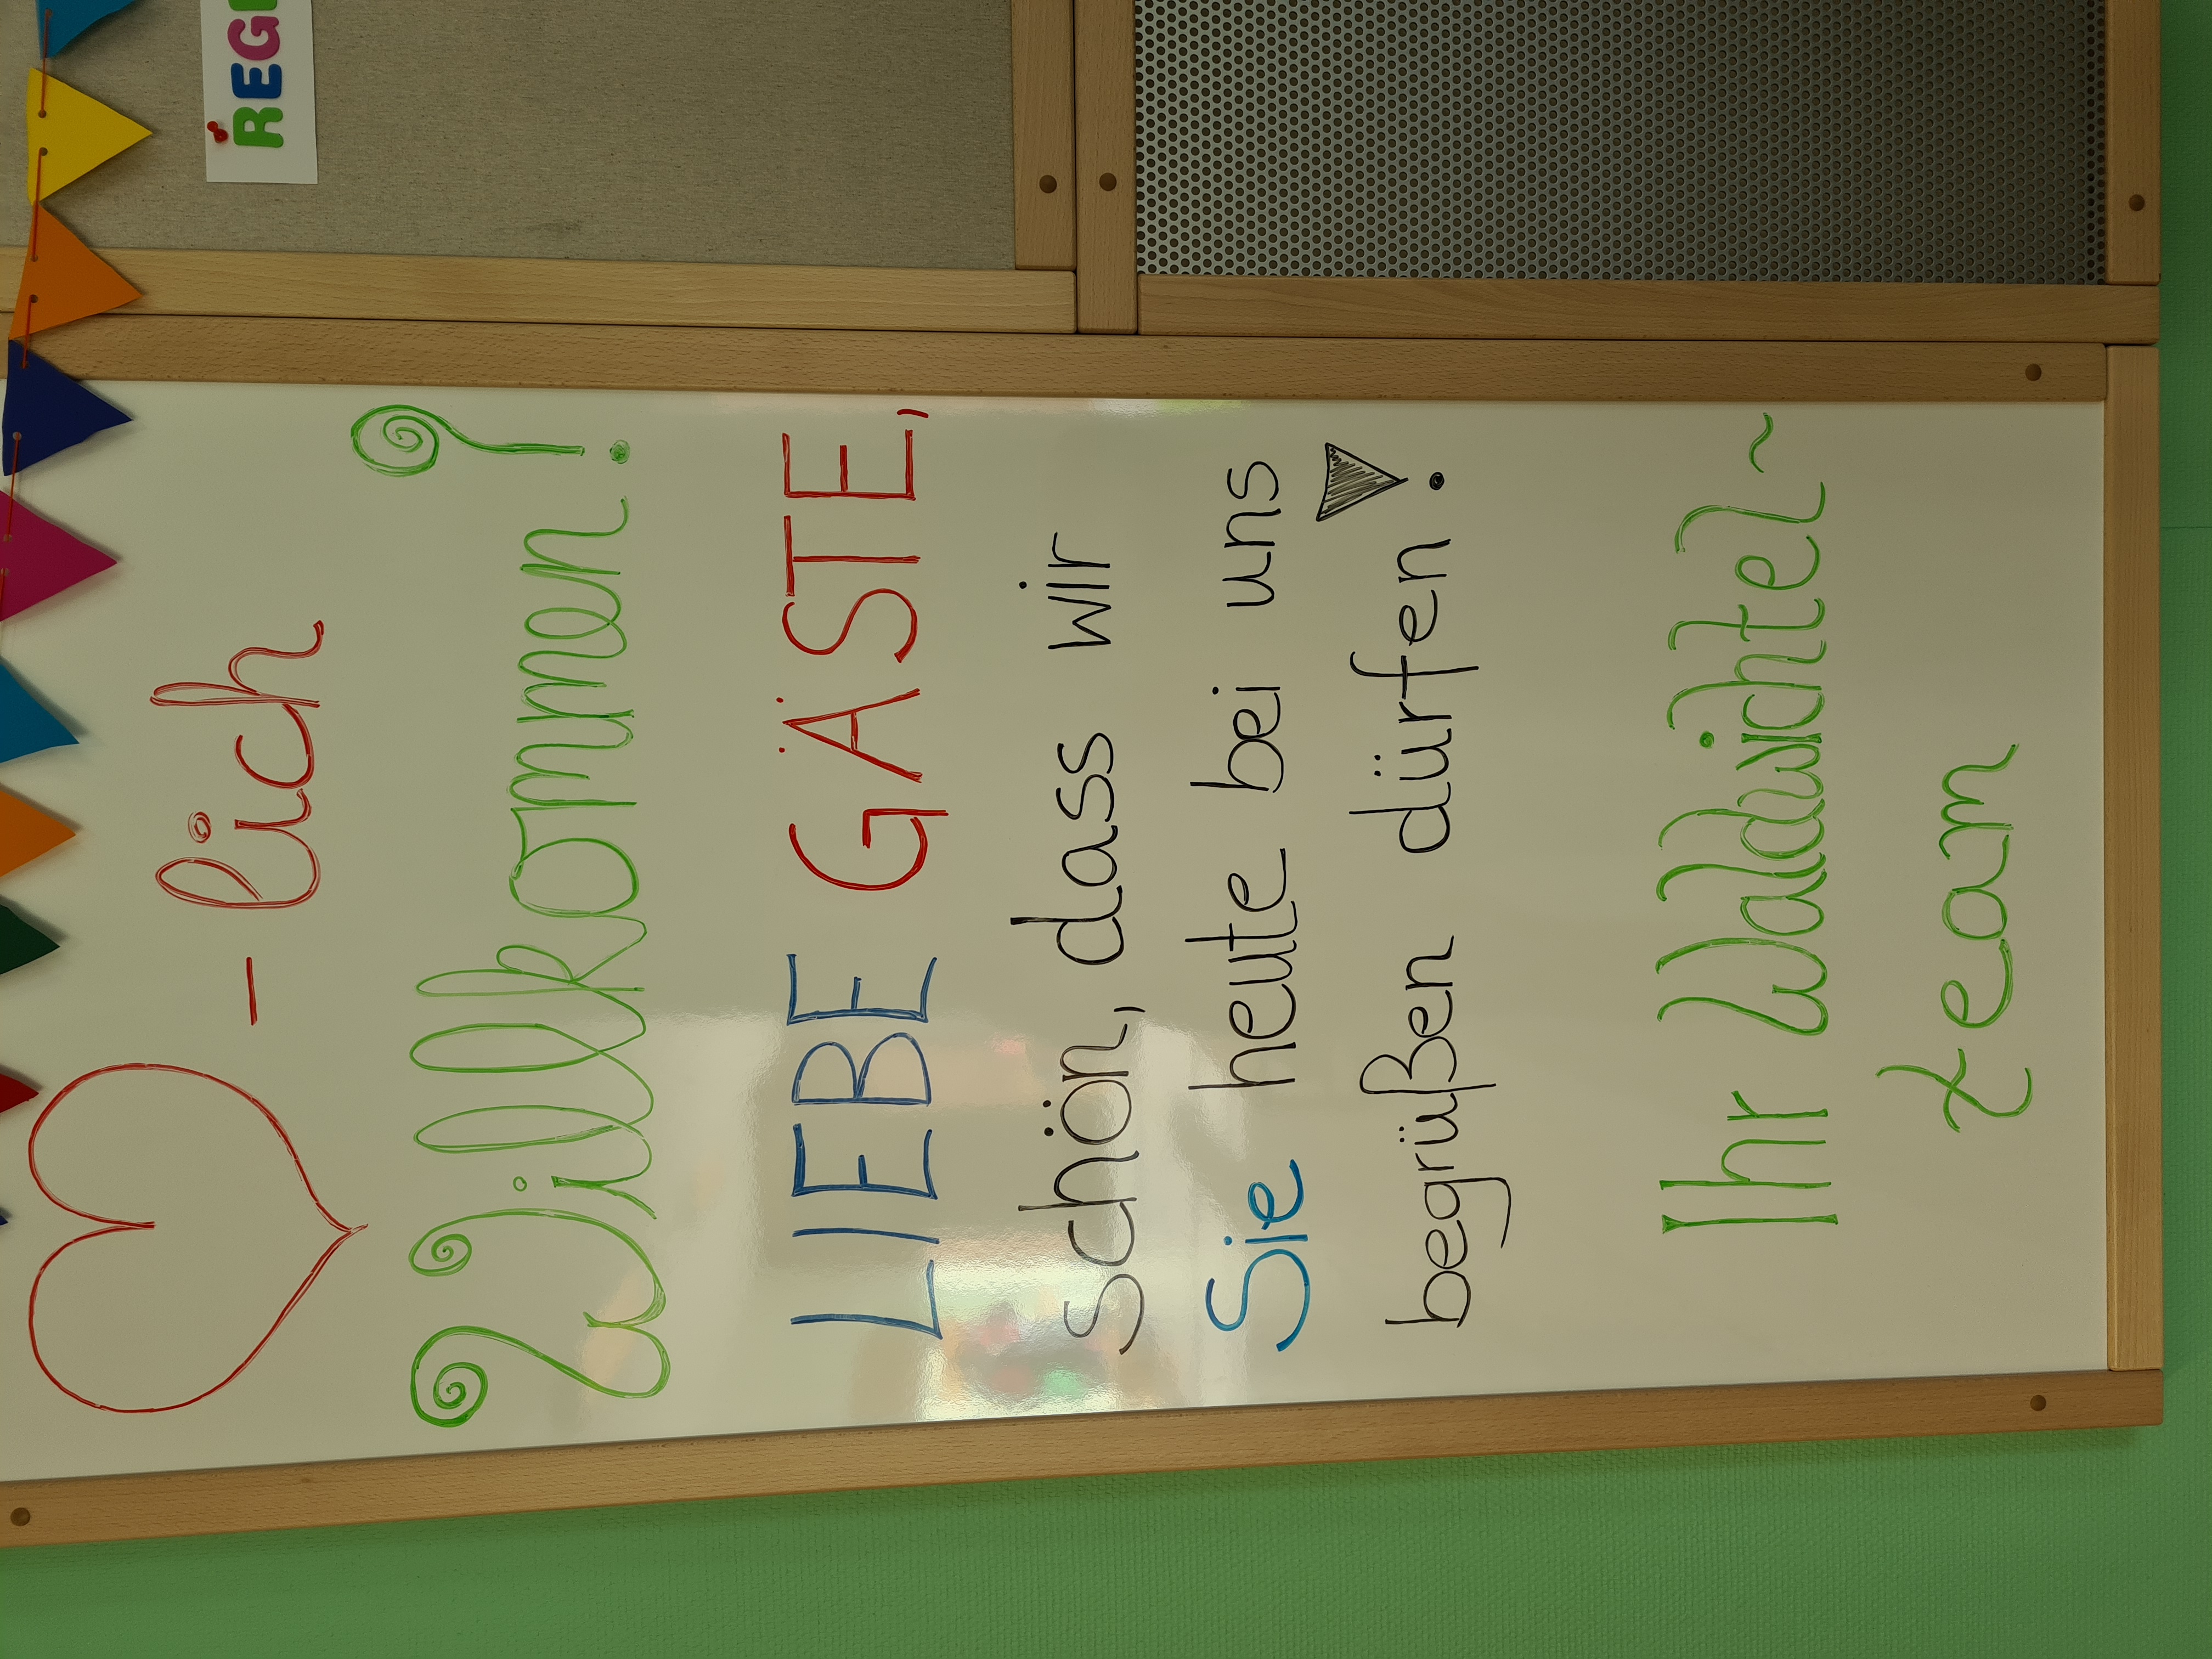 ♡-lich
Willkommen!
LIEBE GÄSTE,
schön, dass wir
Sie heute bei uns
begrüßen dürfen!
Ihr Waldwichtel~
team